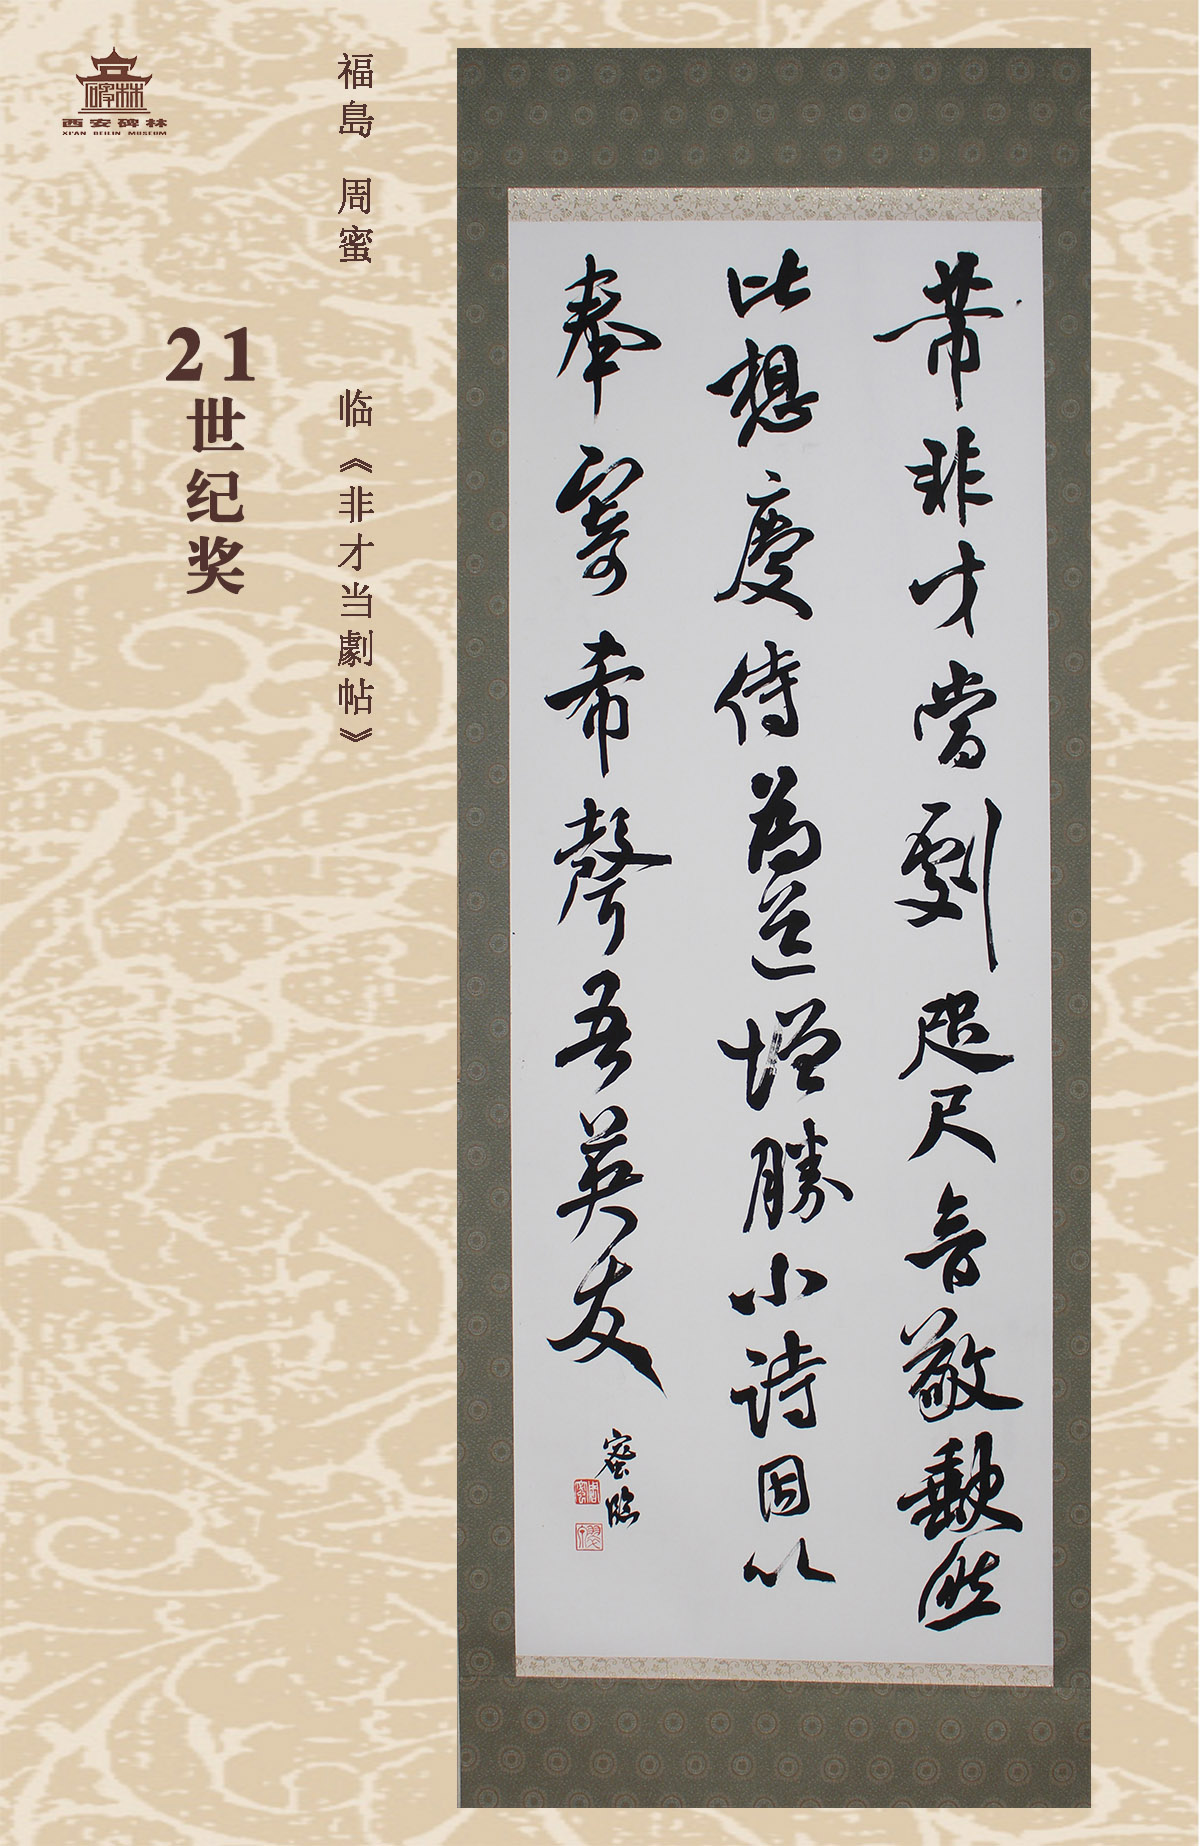 西安碑林
XI'AN BEILIN MUSEUM
21世纪奖
福島 周蜜 临《非才当劇帖》
芾非才當劇咫尺音敬缺然
比想慶侍為道增勝小詩因以
奉寄希聲吾英友
蜜臨